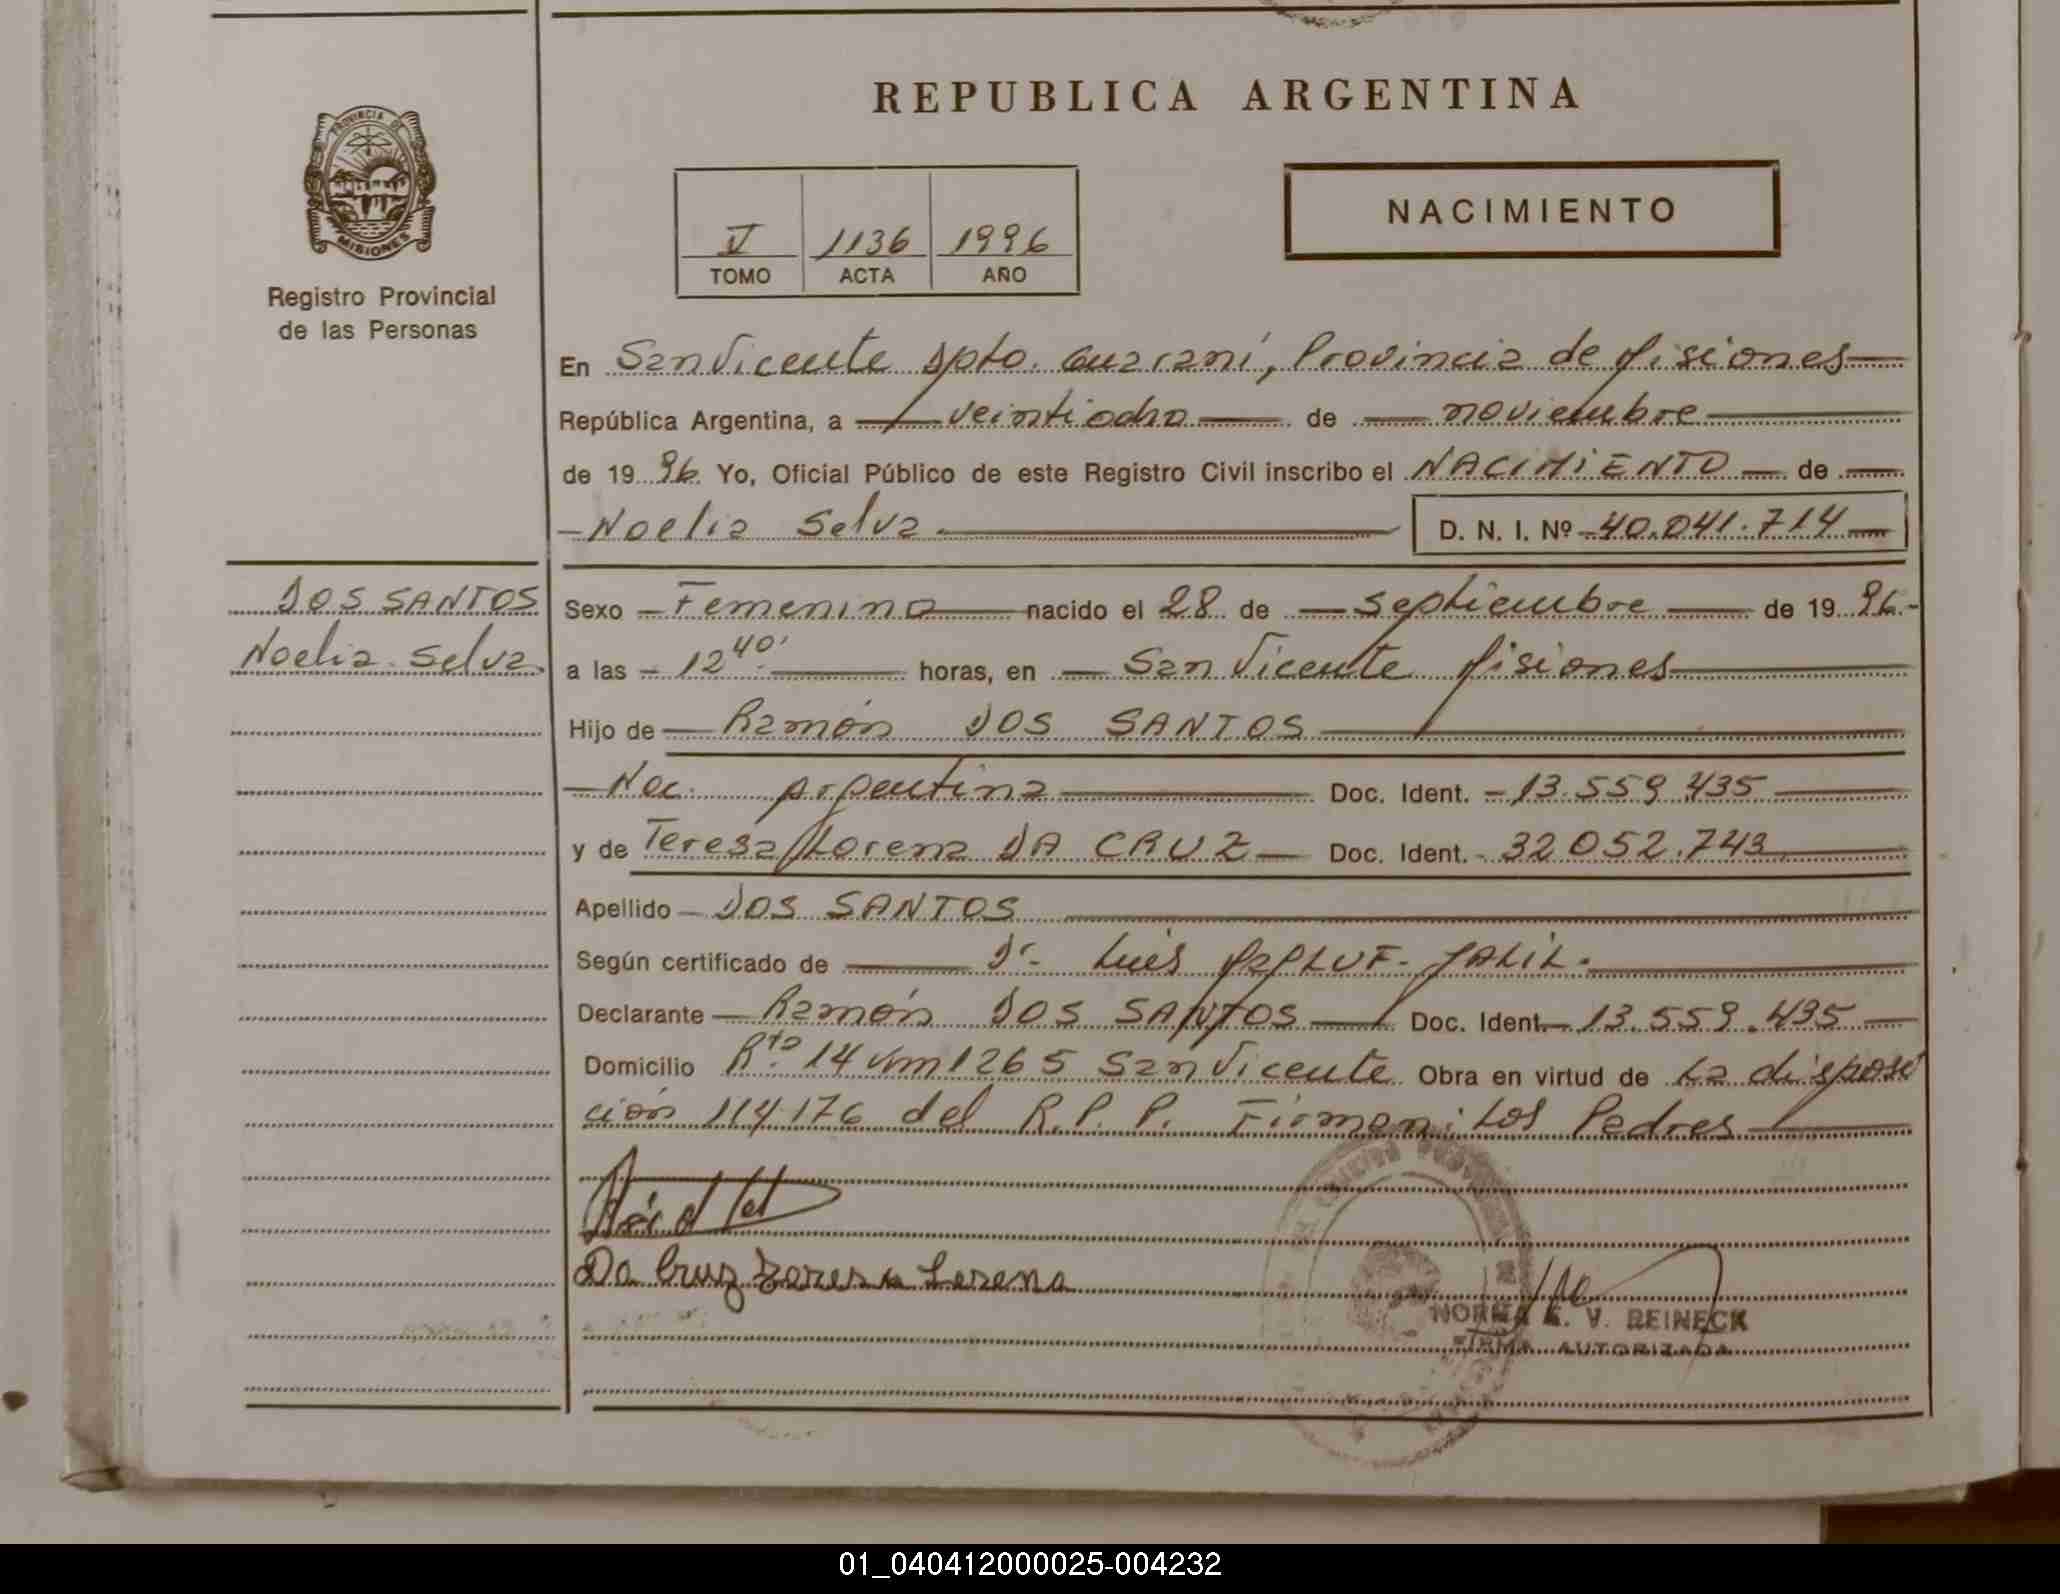 REPUBLICA ARGENTINA
PROVINCIA DE
MISIONES
Registro Provincial
de las Personas
V 1136 1996
TOMO ACTA AÑO
NACIMIENTO
En San Vicente Dpto. Guaraní, Provincia de Misiones
República Argentina, a veintiocho de noviembre
de 1996 Yo, Oficial Público de este Registro Civil inscribo el NACIMIENTO de
Noelia Selva D. N. I. Nº 40.041.714
DOS SANTOS
Noelia Selva
Sexo Femenino nacido el 28 de septiembre de 1996.-
a las 12 40' horas, en San Vicente Misiones
Hijo de Ramón DOS SANTOS
Nac. Argentina Doc. Ident. 13.559.435
y de Teresa Lorena DA CRUZ Doc. Ident. 32052.743
Apellido DOS SANTOS
Según certificado de Dr. Luis JALIL.
Declarante Ramón DOS SANTOS Doc. Ident. 13.559.435
Domicilio Rta. 14 km 1265 San Vicente Obra en virtud de La disposi
ción 114/176 del R.P.P. Firman: Los Padres
Da Cruz Teresa Lorena
NORMA E. V. REINECK
FIRMA AUTORIZADA
01_040412000025-004232